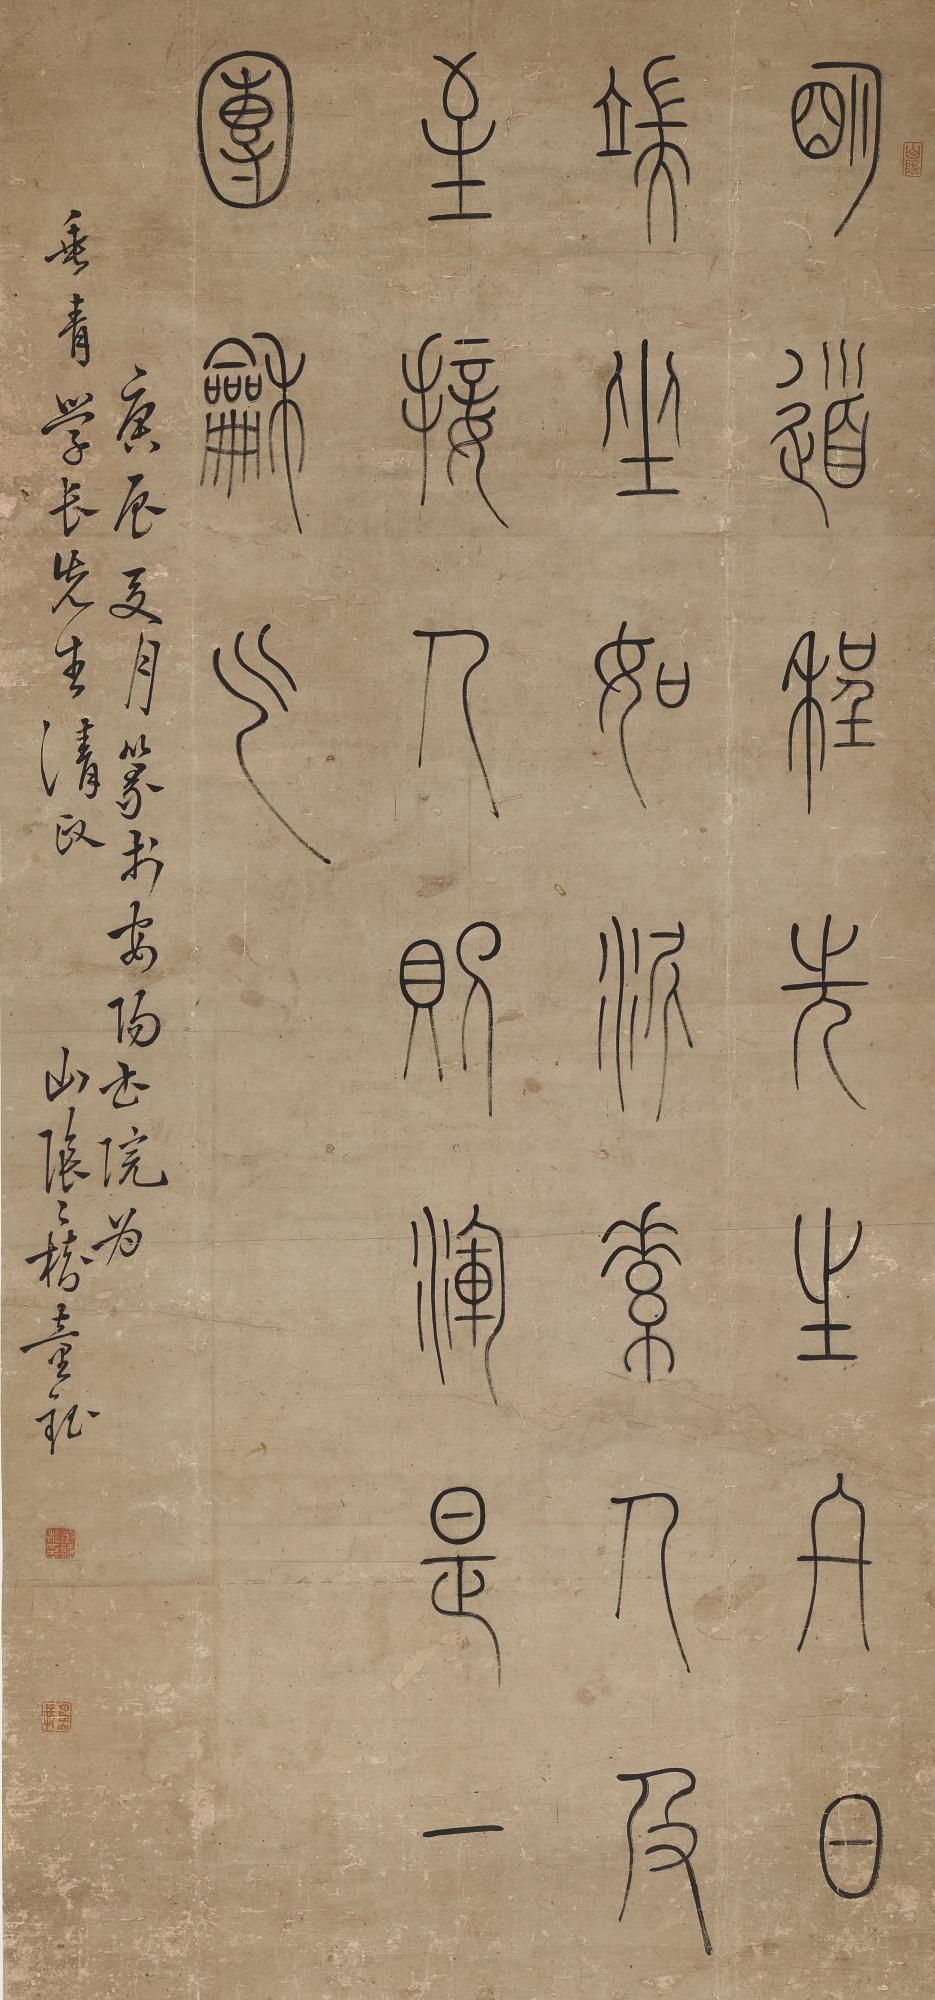 山陰
明道程先生終日
端坐如泥素人及
至接人則渾是一
團龢气
庚辰夏月篆於安陽書院為
垂青學長先生清政 山陰二樹童鈺